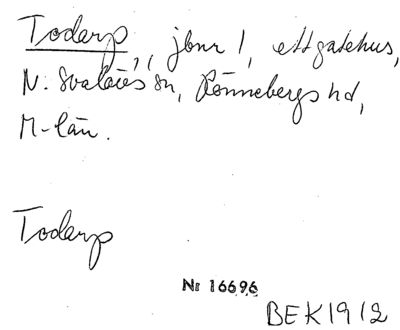 Toderp, jbnr 1, ett gatehus,
N. Svalövs sn, Rönnebergs hd,
M-län.
Toderp
Nr 16696
BEK1912